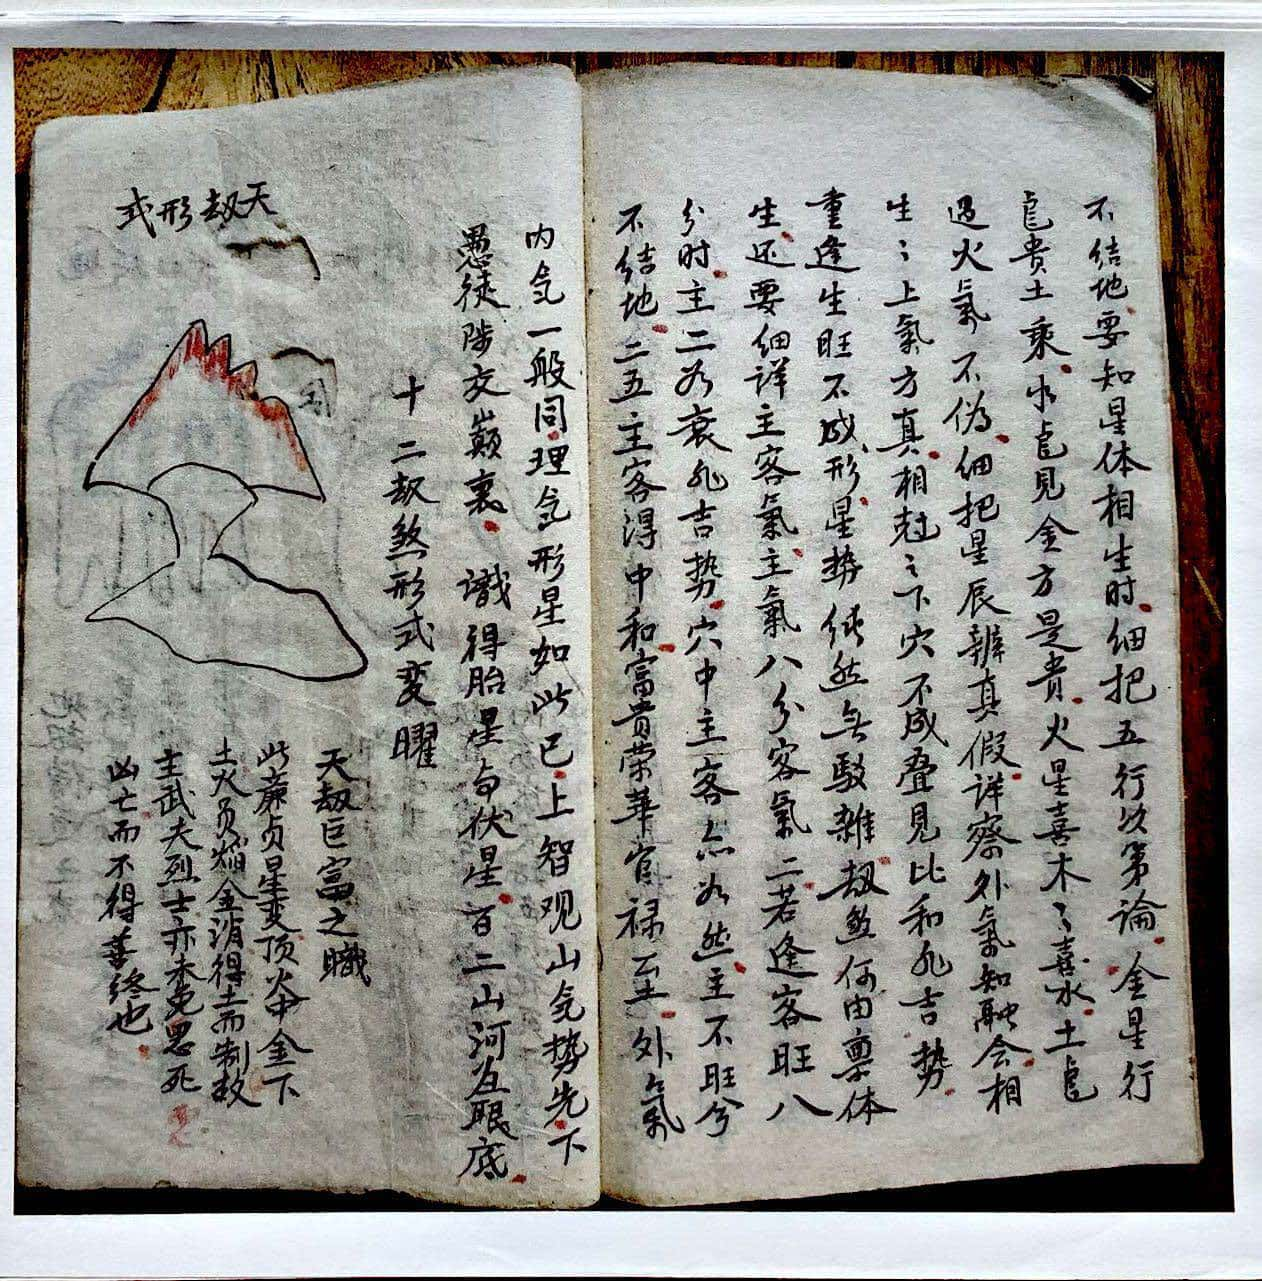 不结地要知星体相生时细把五行次第论金星行
乕贵土乘水乕見金方是贵火星喜木〻喜水土乕
遇火氣不伪细把星辰辨真假详察外氣知融会相
生〻上氣方真相尅〻下穴不成叠見比和非吉势
重逢生旺不成形星势纯然无駁雜劫煞何由禀体
生还要细详主客氣主氣八分客氣二若逢客旺八
分时主二为衰非吉势穴中主客亦为然主不旺兮
不结地二五主客得中和富貴荣華官禄至外氣
内氣一般同理氣形星如此已上智观山气势先下
愚徒陟交巅裏識得胎星与伏星百二山河在眼底
十二劫煞形式变曜
天劫形式
天劫巨富之職
此亷贞星变顶火中金下
土火员焰金消得土而制故
主武夫烈士亦未免恶死
凶亡而不得善终也